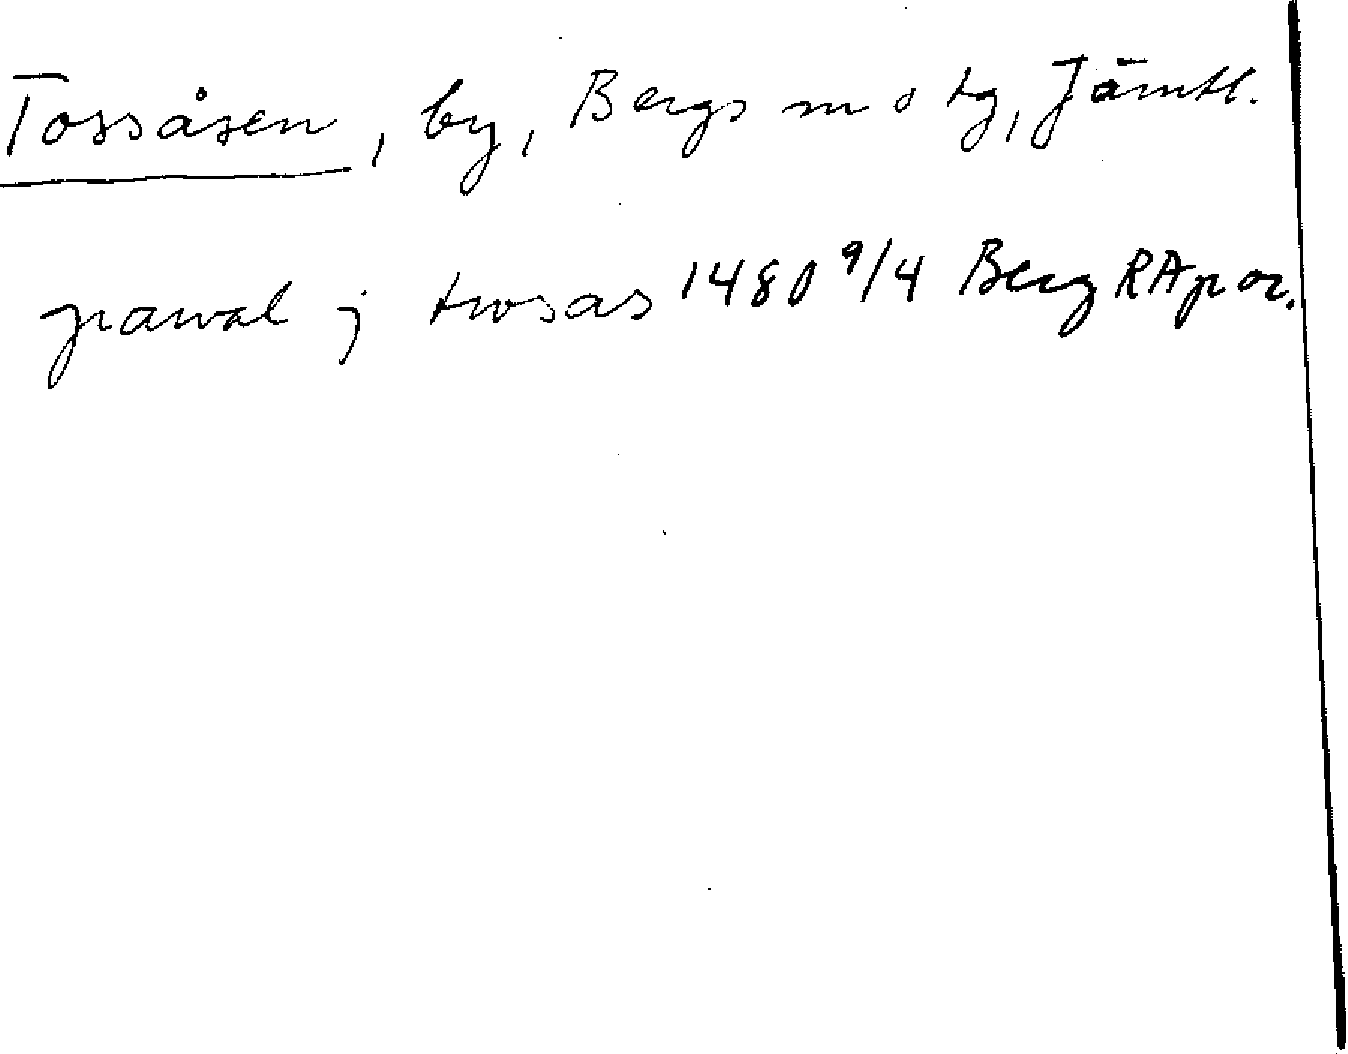 Tossåsen, by, Bergs sn o tg, Jämtl.
parwal j twsas 1480 9/4 Berg RAp or.